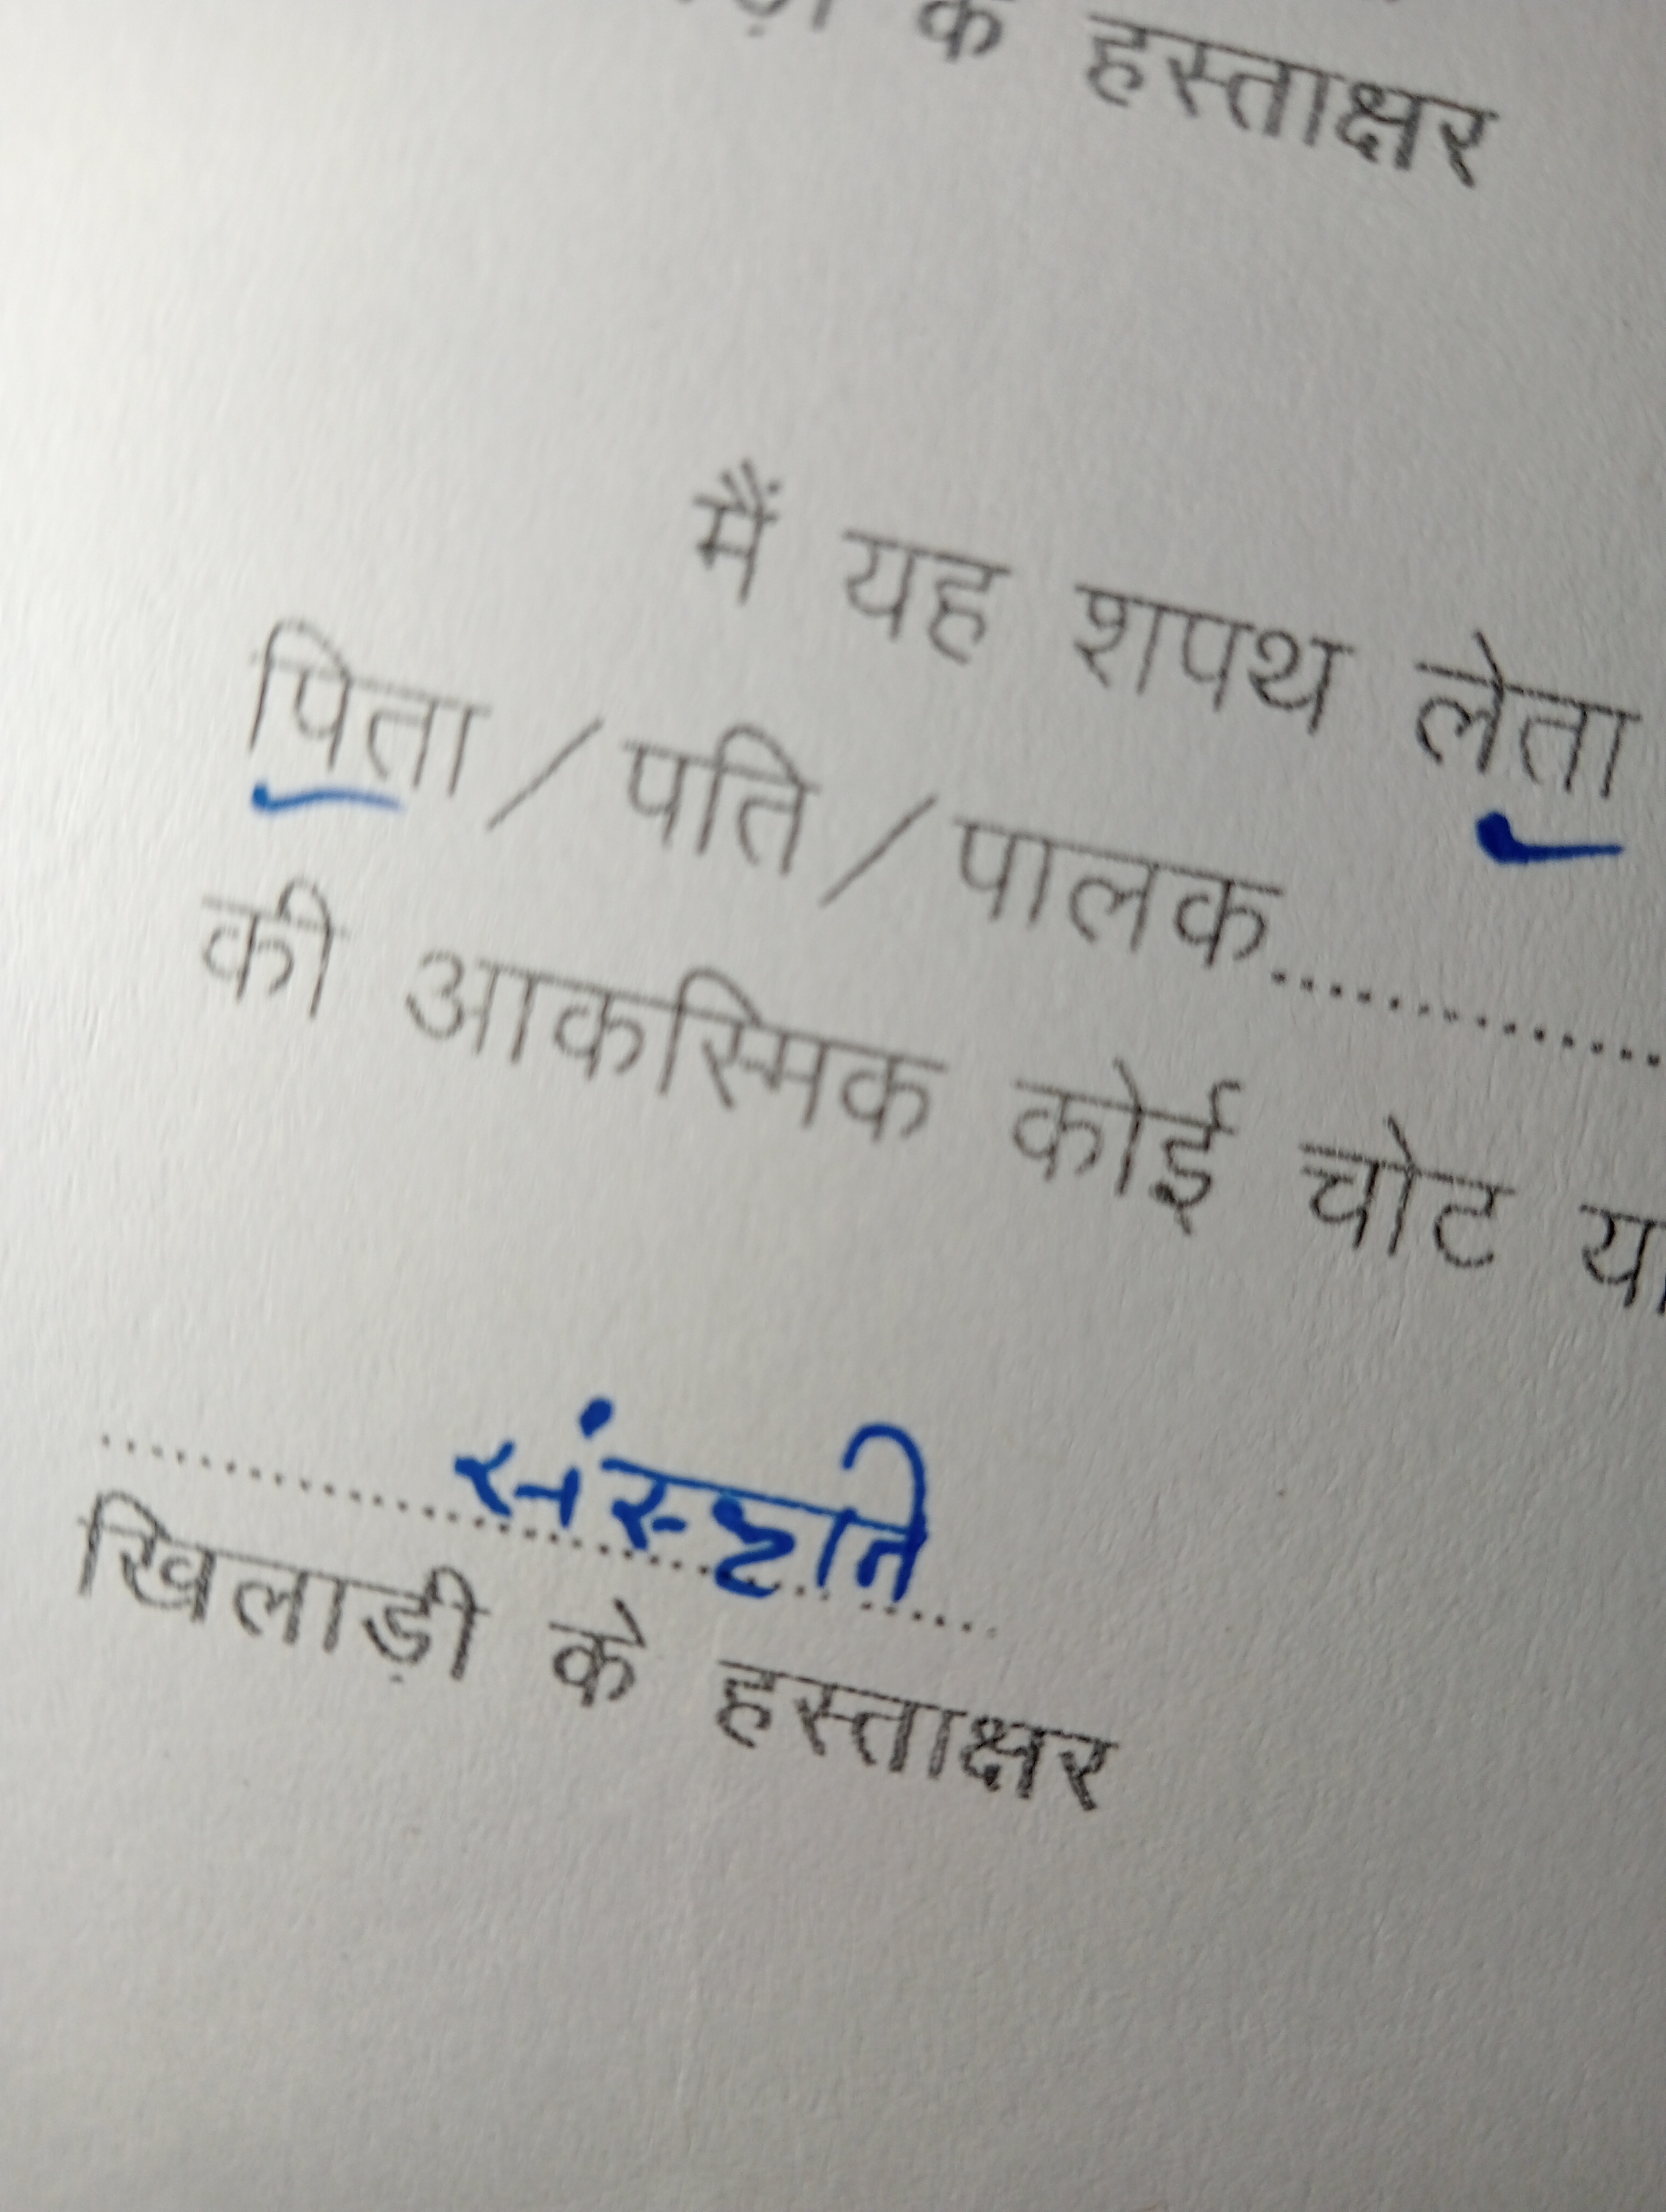 के हस्ताक्षर
मैं यह शपथ लेता
पिता / पति / पालक..............
की आकस्मिक कोई चोट या
संस्कृति
खिलाड़ी के हस्ताक्षर